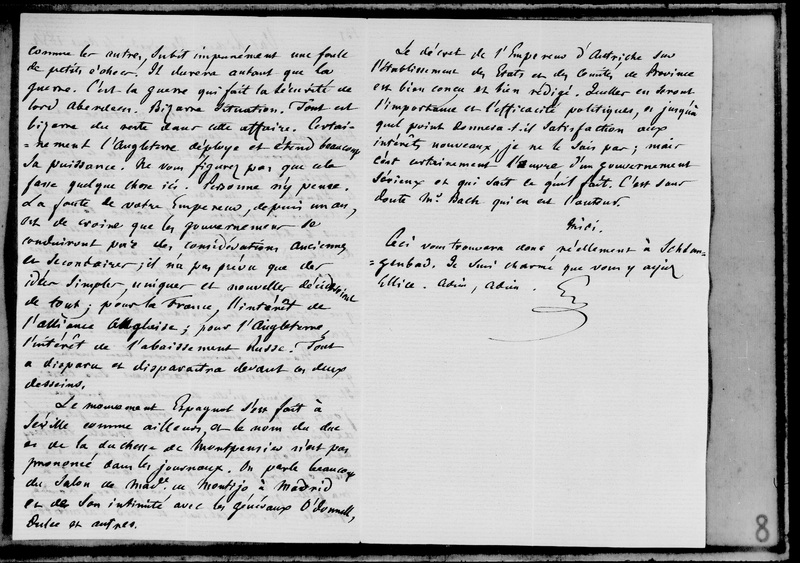 comme les autres, subit impunément une foule
de petits échecs. Il durera autant que la
guerre. C'est la guerre qui fait la sécurité de
lord Aberdeen. Bizarre situation. Tout est
bizarre du reste dans cette affaire. Certai-
=nement l'Angleterre déploye et étend beaucoup
sa puissance. Ne vous figurez pas que cela
fasse quelque chose ici. Personne n'y pense.
La faute de votre Empereur, depuis un an,
est de croire que les gouvernemens se
conduiront par des considérations anciennes
et secondaires; il n'a pas prévu que des
idées simples, uniques et nouvelles décideraient
de tout; pour la France, l'intérêt de
l'alliance Anglaise; pour l'Angleterre,
l'intérêt de l'abaissement Russe. Tout
a disparu et disparaitra devant ces deux
desseins.
Le mouvement Espagnol s'est fait à
Séville comme ailleurs, et le nom du duc
et de la duchesse de Montpensier n'est pas
prononcé dans les journaux. On parle beaucoup
du salon de Mad.e de Montijo à Madrid
et de son intimité avec les généraux O'donnell,
Dulce et autres.
Le décret de l'Empereur d'Autriche sur
l'établissement des Etats et des Comités de Province
est bien conçu et bien rédigé. Quelles en seront
l'importance et l'efficacité politiques, et jusqu'à
quel point donnera-t-il satisfaction aux
intérêts nouveaux, je ne le sais pas; mais
c'est certainement l'œuvre d'un gouvernement
sérieux et qui sait ce qu'il fait. C'est sans
doute Mr Bach qui en est l'auteur.
Midi.
Ceci vous trouvera donc réellement à Schlan-
=genbad. Je suis charmé que vous y ayez
Ellice. Adieu, Adieu.
8